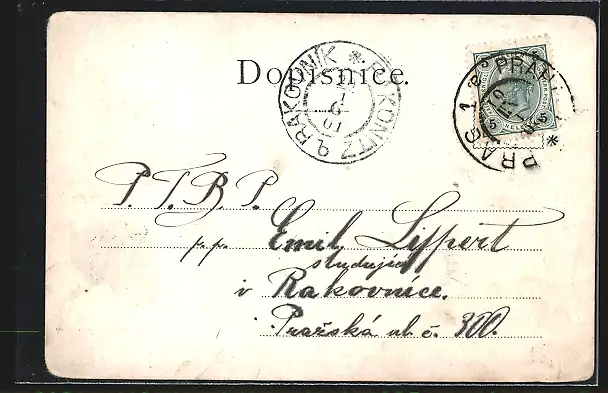 Dopisnice.
RAKOVNÍK * RAKONITZ
1
6
01
PRAG 1 PRAHA
5 HELLER 5
P. T. B. P.
p. p. Emil Lippert
studující
v Rakovnice.
Pražská ul. č. 300.